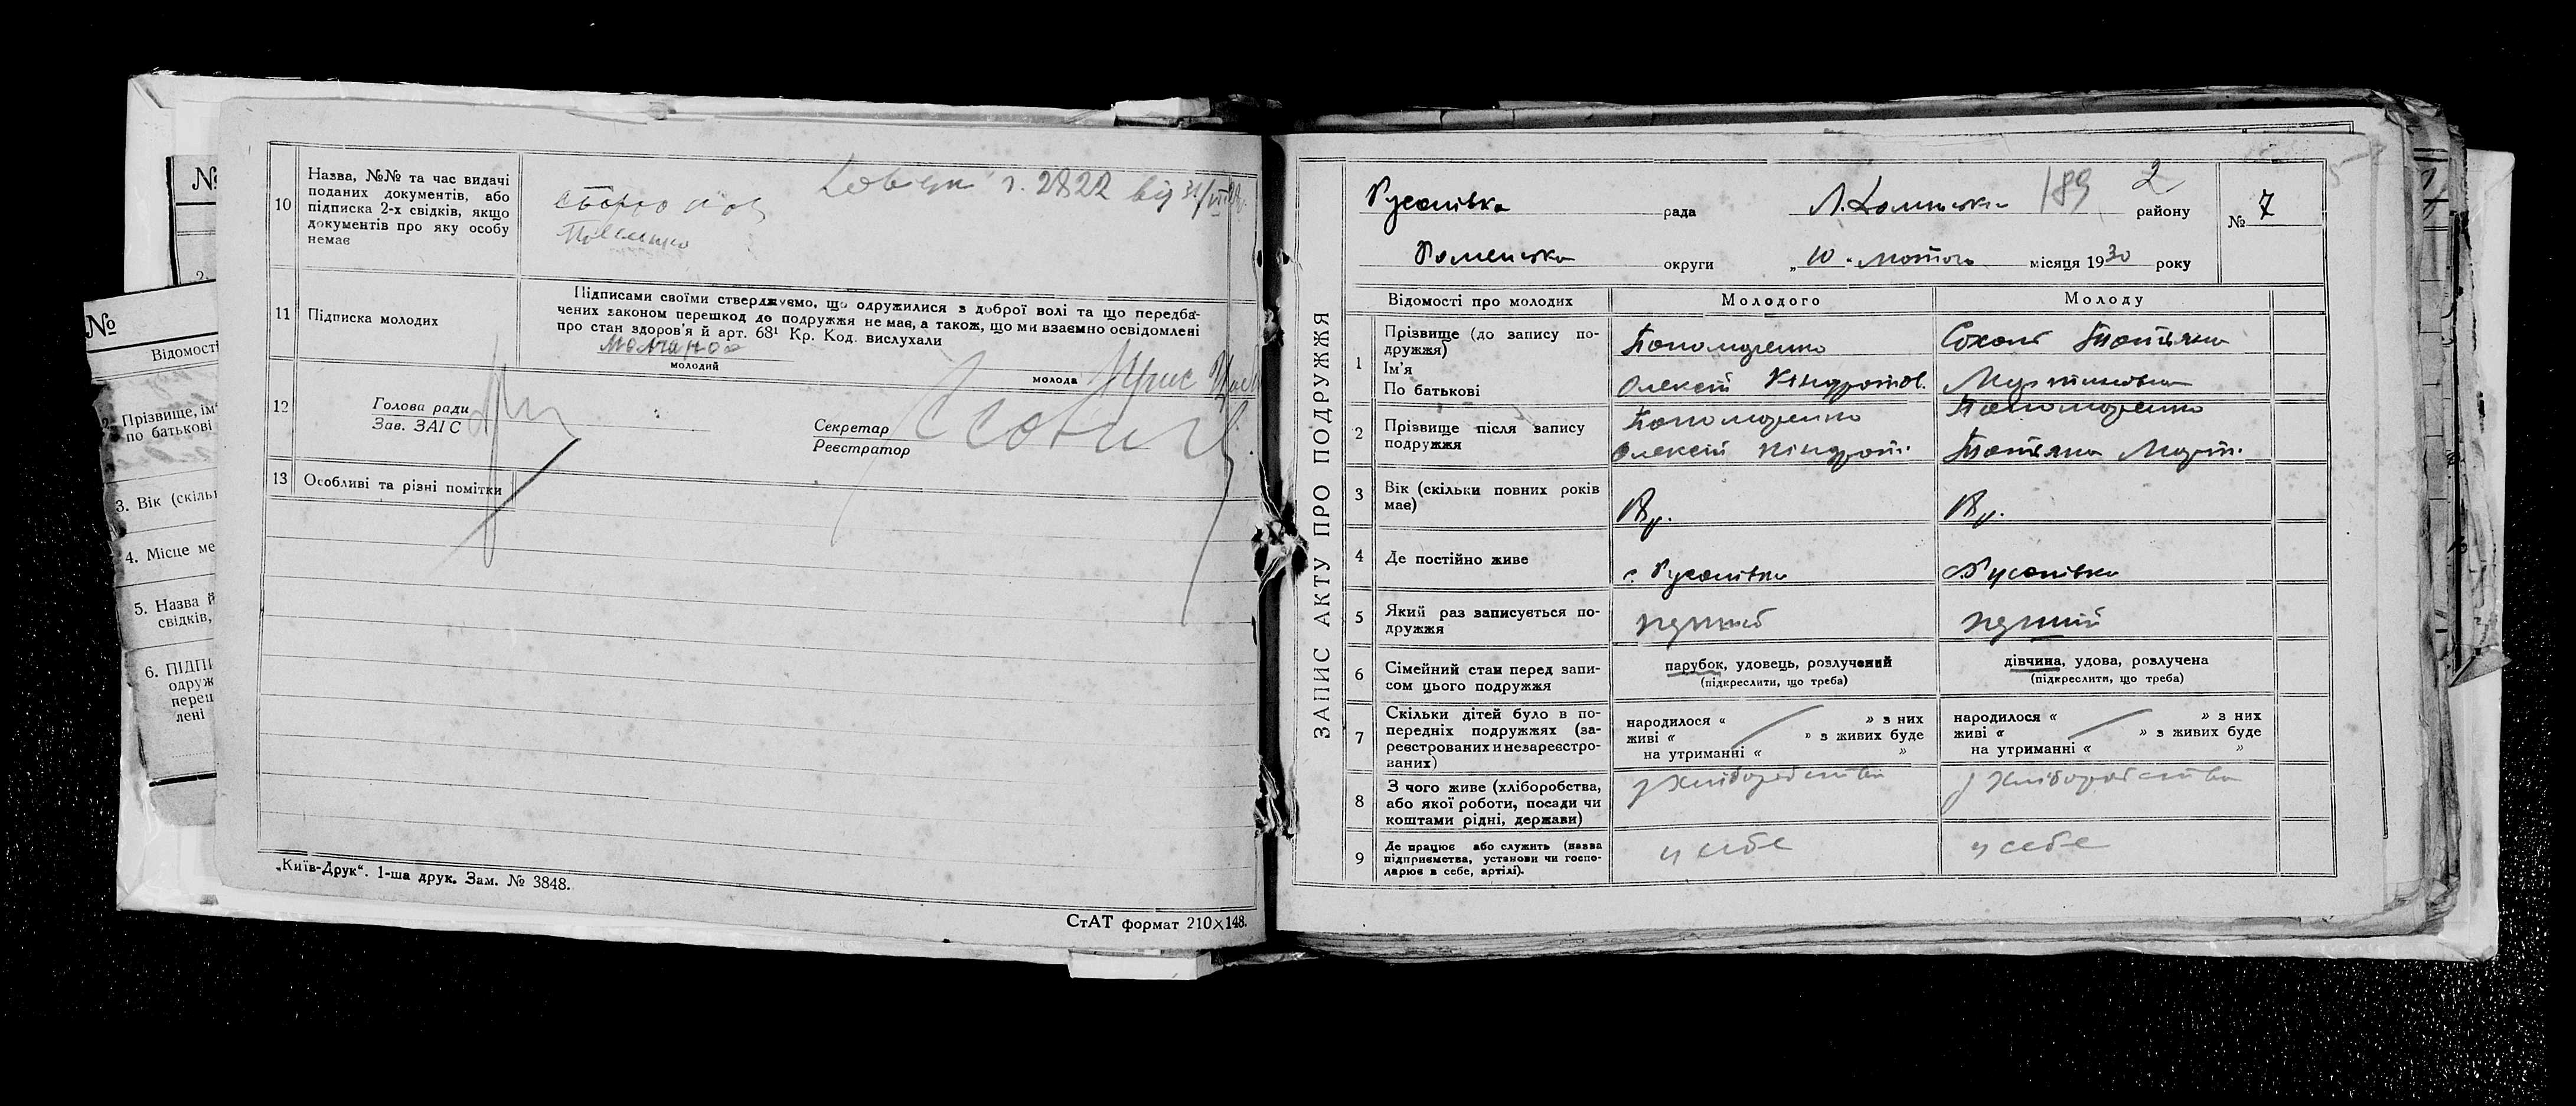 №
Відомості
2. Прізвище, ім'
по батькові
3. Вік (скільк
4. Місце ме
5. Назва й
свідків,
6. ПІДПИ
одруж
переш
лені
10
Назва, №№ та час видачі
поданих документів, або
підписка 2-х свідків, якщо
документів про яку особу
немає
2822 від 31/VII
11 Підписка молодих
Підписами своїми стверджуємо, що одружилися з доброї волі та що передба-
чених законом перешкод до подружжя не має, а також, що ми взаємно освідомлені
про стан здоров'я й арт. 68¹ Кр. Код. вислухали
Молчанов
молодий
молода
12
Голова ради
Зав. ЗАГС
Секретар
Реєстратор
13 Особливі та різні помітки
„Київ-Друк“. 1-ша друк. Зам. № 3848.
СтАТ формат 210×148.
ЗАПИС АКТУ ПРО ПОДРУЖЖЯ
Русанівка рада 189 2 району
Роменська округи „10“ лютого місяця 1930 року
№ 7
Відомості про молодих Молодого Молоду
1
Прізвище (до запису по-
дружжя)
Ім'я
По батькові
Пономаренко
Олексій Кіндратов.
Сохань Тетяна
Мартинівна
2
Прізвище після запису
подружжя
Пономаренко
Олексій Кіндрат.
Пономаренко
Тетяна Март.
3
Вік (скільки повних років
має)
18 р.
18 р.
4
Де постійно живе
с. Русанівка
с. Русанівка
5
Який раз записується по-
дружжя
перший
перший
6
Сімейний стан перед запи-
сом цього подружжя
парубок, удовець, розлучений
(підкреслити, що треба)
дівчина, удова, розлучена
(підкреслити, що треба)
7
Скільки дітей було в по-
передніх подружжях (за-
реєстрованих и незареєстро-
ваних)
народилося « » з них
живі « » з живих буде
на утриманні « »
народилося « » з них
живі « » з живих буде
на утриманні « »
8
З чого живе (хліборобства,
або якої роботи, посади чи
коштами рідні, держави)
з хліборобства
з хліборобства
9
Де працює або служить (назва
підприємства, установи чи госпо-
дарює в себе, артілі).
у себе
у себе